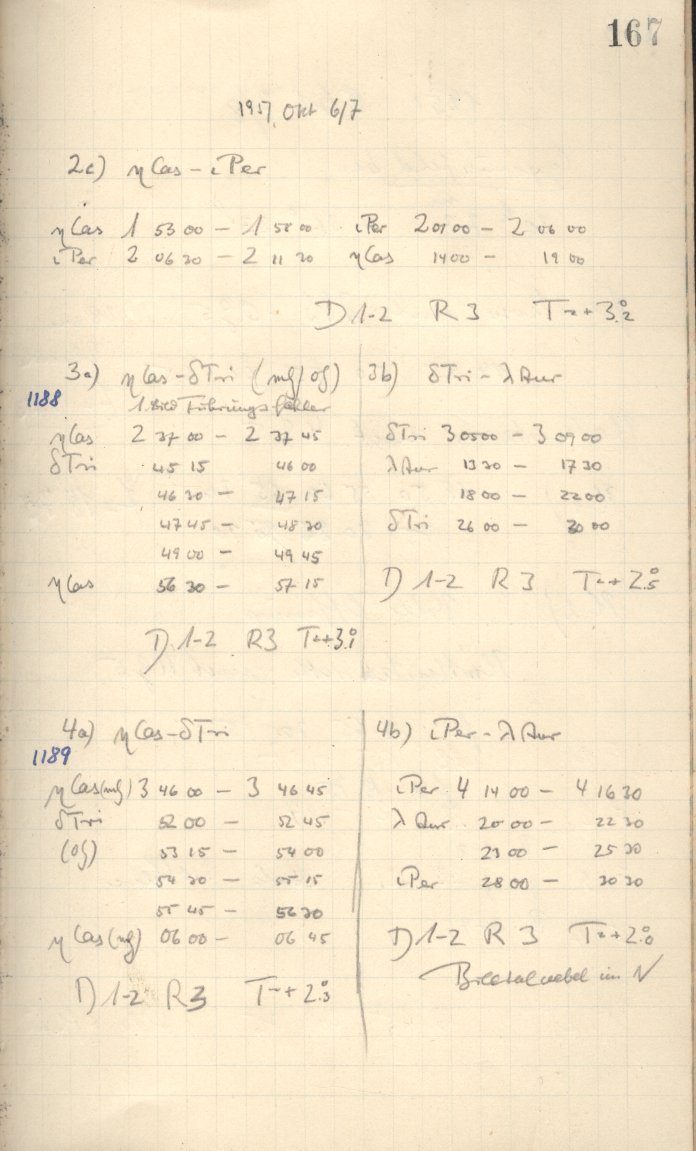 167
1957, Okt 6/7
2c) ηCas – ιPer
ηCas 1 53 00 – 1 58 00 ιPer 2 01 00 – 2 06 00
ιPer 2 06 30 – 2 11 30 ηCas 14 00 – 19 00
D 1-2 R 3 T = + 3.°2
3a) ηCas – δTri (mg/og)
1188
1. Bild Führungsfehler
ηCas 2 37 00 – 2 37 45
δTri 45 15 46 00
46 30 – 47 15
47 45 – 48 30
49 00 – 49 45
ηCas 56 30 – 57 15
D 1-2 R3 T = + 3.°1
3b) δTri – λAur
δTri 3 05 00 – 3 09 00
λAur 13 30 – 17 30
18 00 – 22 00
δTri 26 00 – 30 00
D 1-2 R 3 T = + 2.°5
4a) ηCas – δTri
1189
ηCas (mg) 3 46 00 – 3 46 45
δTri 52 00 – 52 45
(og) 53 15 – 54 00
54 30 – 55 15
55 45 – 56 30
ηCas (mg) 06 00 – 06 45
D 1-2 R3 T = + 2.°3
4b) ιPer – λAur
ιPer 4 14 00 – 4 16 30
λAur 20 00 – 22 30
23 00 – 25 30
ιPer 28 00 – 30 30
D 1-2 R 3 T = + 2.°0
im N